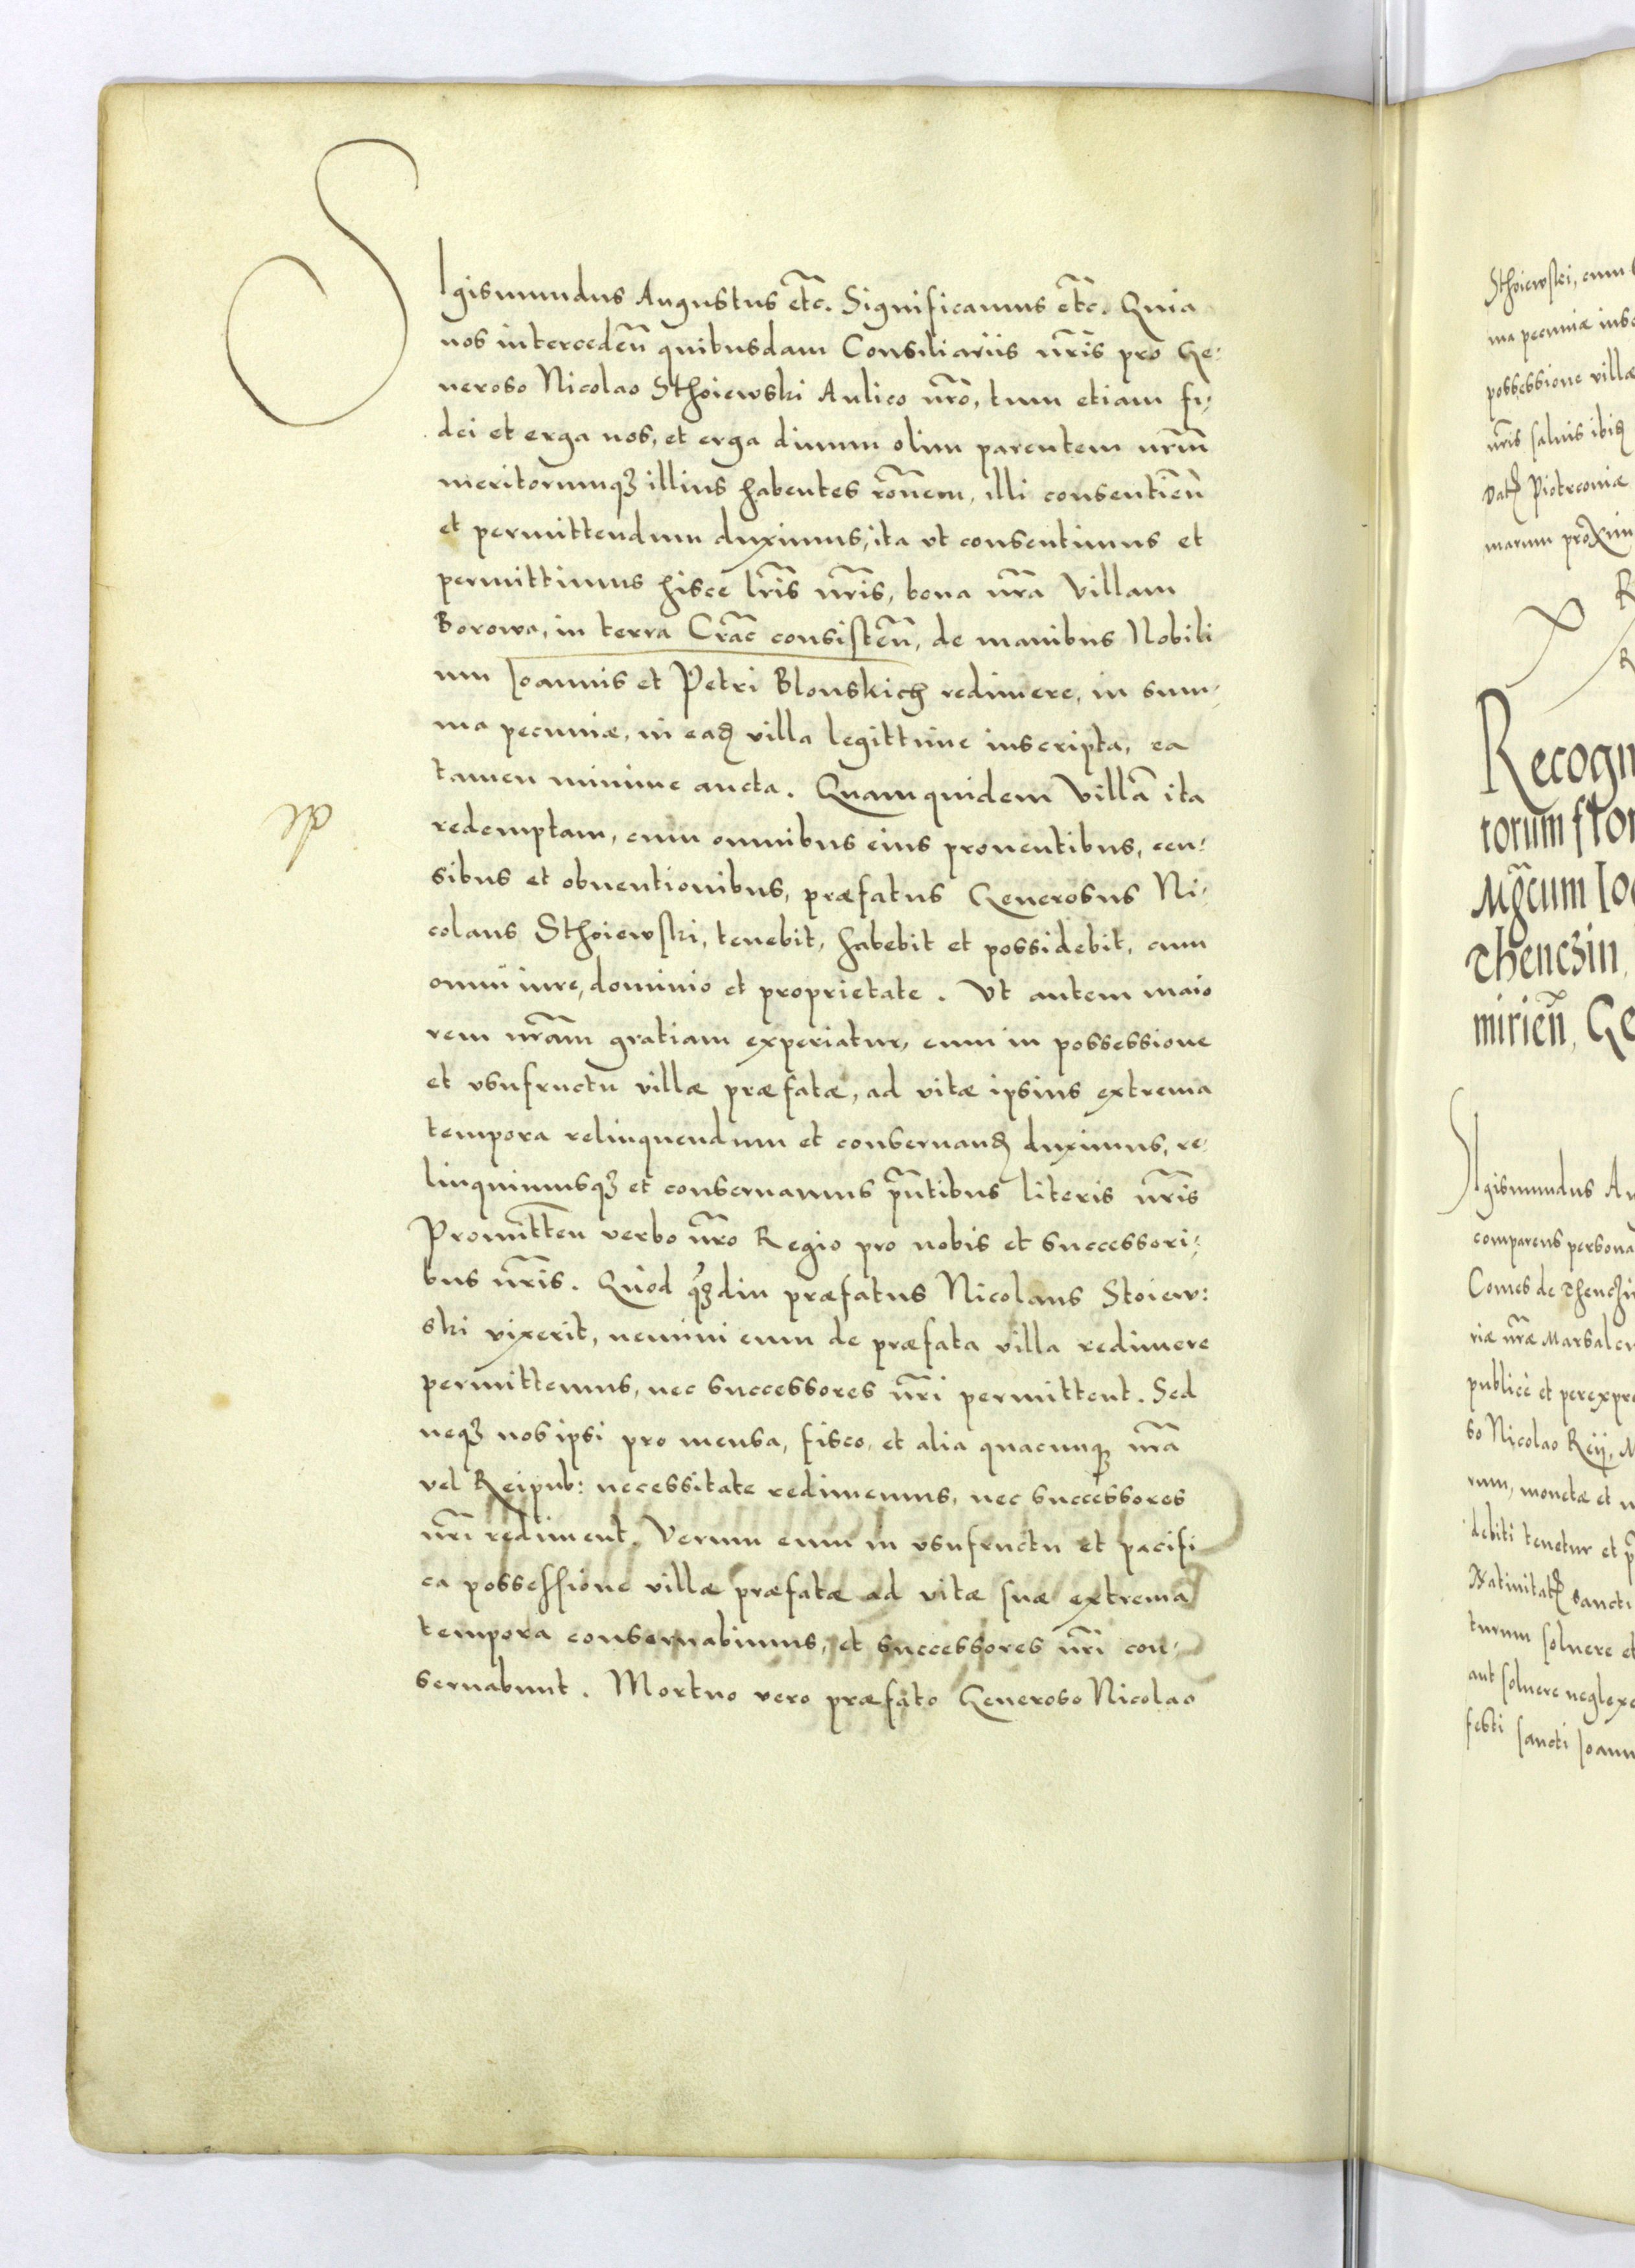 SIgismundus Augustus etc̃. Significamus etc̃. Quia
nos intercedeñ quibusdam Consiliariis nr̃is pro Ge:
neroso Nicolao Sthoiewski Aulico nr̃o, tum etiam fi,
dei et erga nos, et erga diuum olim parentem nr̃um
meritorumqꝫ illius habentes rõnem, illi consentieñ
et permittendum duximus, ita vt consentimus et
permittimus hisce lr̃is nr̃is, bona nr̃a Villam
Borowa, in terra Crac̃ consisteñ, de manibus Nobili
um Joannis et Petri Blonskich redimere, in sum,
ma pecuniæ, in eaď villa legittime inscripta, ea
tamen minime aucta. Quam quidem Villã ita
redemptam, cum omnibus eius prouentibus, cen:
sibus et obuentionibus, præfatus Generosus Ni,
colaus Sthoiewski, tenebit, habebit et possidebit, cum
omni iure, dominio et proprietate. Vt autem maio
rem nr̃am gratiam experiatur, eum in possessione
et vsufructu villæ præfatæ, ad vitæ ipsius extrema
tempora relinquendum et conseruanď duximus, re,
linquimusqꝫ et conseruamus pñtibus literis nr̃is
Promitteñ verbo nr̃o Regio pro nobis et successori:
bus nr̃is. Quod qꝫdiu præfatus Nicolaus Stoiew:
ski vixerit, nemini eum de præfata villa redimere
permittemus, nec successores nr̃i permittent. Sed
neqꝫ nos ipsi pro mensa, fisco, et alia quacunqꝫ nr̃a
vel Reipub: necessitate redimemus, nec successores
nr̃i rediment. Verum eum in vsufructu et pacifi
ca possessione villæ præfatæ ad vitæ suæ extrema
tempora conseruabimus, et successores nr̃i con,
seruabunt. Mortuo vero præfato Generoso Nicolao
Sthoiewski, cum
ma pecuniæ ins
possessione villæ
nr̃is saluis ibiď
Piotrcouiæ
marum proxim
Recogn
torum flor
Mg̃cum Io
Thenczin,
mirieñ, Ge
SIgismundus Au
comparens persona
Comes de Thenczi
riæ nr̃æ Marsalcu
publice et perexpre
so Nicolao Reij, M
rum, monetæ et n
debiti tenetur et p
Natiuitat̃ sancti
turum soluere et
aut soluere neglexe
festi sancti Joann